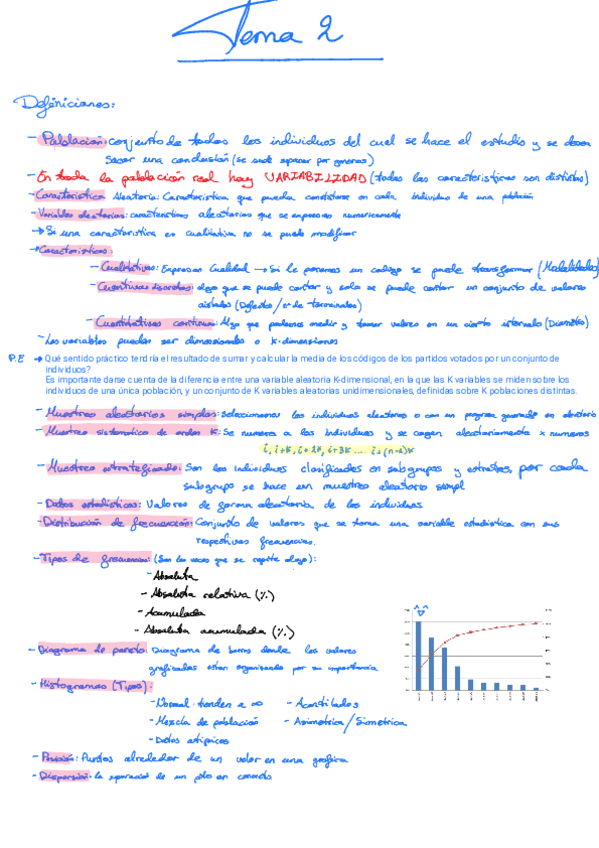 Tema 2
Definiciones:
- Población: conjunto de todos los individuos del cual se hace el estudio y se desea
sacar una conclusión (se suele separar por generos)
- En toda la población real hay VARIABILIDAD (todas las características son distintas)
- Característica Aleatoria: Característica que pueda constatarse en cada individuo de una población
- Variables aleatorias: características aleatorias que se expresan numericamente
→ Si una característica es cualitativa no se puede modificar
→ Características:
- Cualitativas: Expresan Cualidad → Si le ponemos un codigo se puede transformar (Modalidades)
- Cuantitivas discretas: algo que se puede contar y solo se puede contar un conjunto de valores
aislados (Defectos / nº de terminales)
- Cuantitativas continuas: Algo que podemos medir y tomar valores en un cierto intervalo (Diametro)
- Las variables pueden ser dimensionales o K-dimensiones
P.E → Qué sentido práctico tendría el resultado de sumar y calcular la media de los códigos de los partidos votados por un conjunto de
individuos?
Es importante darse cuenta de la diferencia entre una variable aleatoria K-dimensional, en la que las K variables se miden sobre los
individuos de una única población, y un conjunto de K variables aleatorias unidimensionales, definidas sobre K poblaciones distintas.
- Muestreo aleatorios simples: Seleccionamos los individuos aleatorios o con un programa generado en aleatorio
- Muestreo sistematico de orden K: Se numera a los individuos y se cogen aleatoriamente x numeros
i, i+K, i+2K, i+3K ... i+(n-1)K
- Muestreo estratificado: Son los individuos clasificados en subgrupos y estratos, por cada
subgrupo se hace un muestreo aleatorio simpl
- Datos estadísticos: Valores de forma aleatoria de los individuos
- Distribución de frecuencias: Conjunto de valores que se toma una variable estadística con sus
respectivas frecuencias.
- Tipos de frecuencias: (Son las veces que se repite algo):
- Absoluta
- Absoluta relativa (%)
- Acumulada
- Absoluta acumulada (%)
- Diagrama de pareto: Diagrama de barras donde los valores
graficados estan organizados por su importancia
- Histogramas (Tipos):
- Normal: tienden a ∞ - Acantilados
- Mezcla de población - Asimetrica / Simetrica
- Datos atipicos
- Posición: Puntos alrededor de un valor en una grafica
- Dispersión: la separación de un pto en concreto